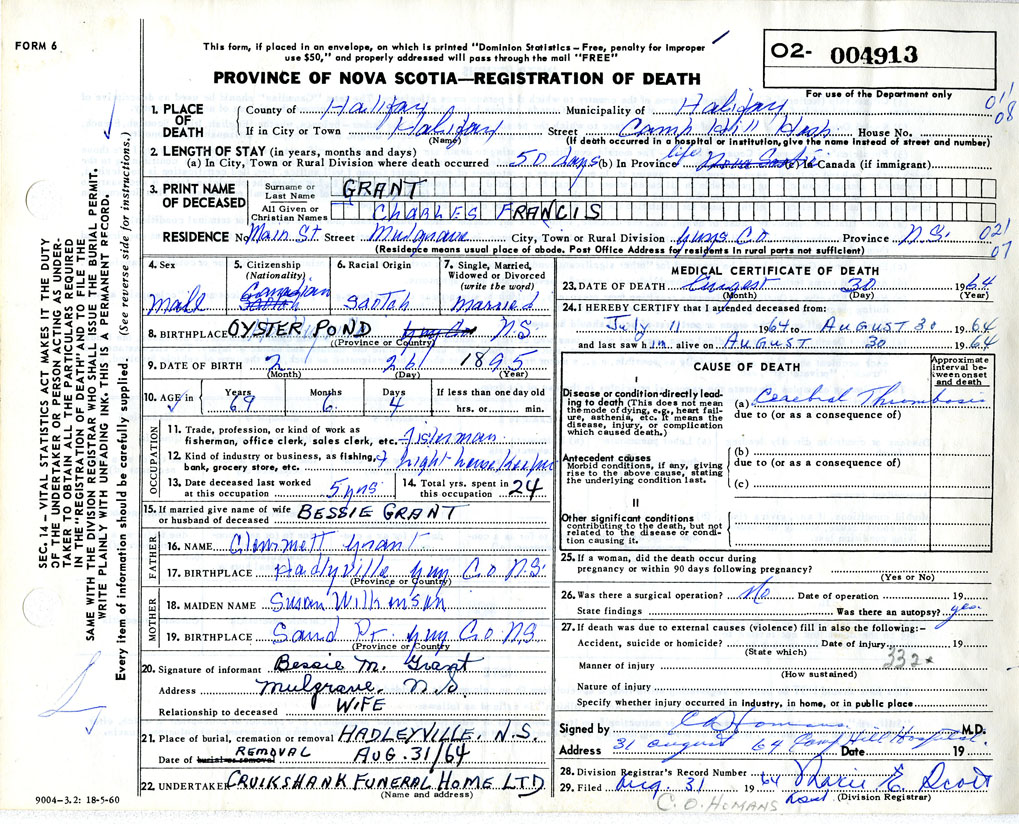 FORM 6
This form, if placed in an envelope, on which is printed "Dominion Statistics—Free, penalty for improper
use $50," and properly addressed will pass through the mail "FREE"
PROVINCE OF NOVA SCOTIA—REGISTRATION OF DEATH
02- 004913
For use of the Department only
1. PLACE OF DEATH
County of Halifax Municipality of Halifax 011 08
If in City or Town Halifax Street Camp Hill Hosp House No.
(Name) (If death occurred in a hospital or institution, give the name instead of street and number)
2. LENGTH OF STAY (in years, months and days)
(a) In City, Town or Rural Division where death occurred 50 days (b) In Province life Nova Scotia (c) In Canada (if immigrant)
3. PRINT NAME OF DECEASED
Surname or Last Name GRANT
All Given or Christian Names CHARLES FRANCIS
RESIDENCE No Main St. Street Mulgrave City, Town or Rural Division Guys Co Province N.S. 021 07
(Residence means usual place of abode. Post Office Address for residents in rural parts not sufficient)
4. Sex Male
5. Citizenship (Nationality) Canadian
6. Racial Origin Scotch
7. Single, Married, Widowed or Divorced (write the word) Married
8. BIRTHPLACE OYSTER POND N.S.
(Province or Country)
9. DATE OF BIRTH 2 26 1895
(Month) (Day) (Year)
10. AGE in Years 69 Months 6 Days 4 If less than one day old hrs. or min.
OCCUPATION
11. Trade, profession, or kind of work as
fisherman, office clerk, sales clerk, etc. Fisherman
12. Kind of industry or business, as fishing,
bank, grocery store, etc. light house keeper
13. Date deceased last worked at this occupation 5 yrs
14. Total yrs. spent in this occupation 24
15. If married give name of wife or husband of deceased BESSIE GRANT
FATHER
16. NAME Clemmett Grant
17. BIRTHPLACE Hadlyville Guy Co N.S.
(Province or Country)
MOTHER
18. MAIDEN NAME Susan Wilkinson
19. BIRTHPLACE Sand Pt. Guy Co N.S
(Province or Country)
20. Signature of informant Bessie M. Grant
Address Mulgrave, N.S.
Relationship to deceased WIFE
21. Place of burial, cremation or removal HADLEYVILLE, N.S.
Date of burial or removal REMOVAL AUG. 31/64
22. UNDERTAKER CRUIKSHANK FUNERAL HOME LTD
(Name and address)
9004-3.2: 18-5-60
MEDICAL CERTIFICATE OF DEATH
23. DATE OF DEATH August 30 1964
(Month) (Day) (Year)
24. I HEREBY CERTIFY that I attended deceased from:
July 11 1964 to AUGUST 30 1964
and last saw him alive on AUGUST 30 1964
CAUSE OF DEATH
Approximate interval between onset and death
I
Disease or condition directly leading to death (This does not mean
the mode of dying, e.g., heart failure, asthenia, etc. It means the
disease, injury, or complication
which caused death.)
(a) Cerebral Thrombosis
due to (or as a consequence of)
Antecedent causes
Morbid conditions, if any, giving
rise to the above cause, stating
the underlying condition last.
(b)
due to (or as a consequence of)
(c)
II
Other significant conditions
contributing to the death, but not
related to the disease or condition causing it.
25. If a woman, did the death occur during
pregnancy or within 90 days following pregnancy?
(Yes or No)
26. Was there a surgical operation? No Date of operation 19
State findings Was there an autopsy? yes.
27. If death was due to external causes (violence) fill in also the following:-
Accident, suicide or homicide? Date of injury 19
(State which)
332*
Manner of injury
(How sustained)
Nature of injury
Specify whether injury occurred in industry, in home, or in public place
Signed by C O Homans M.D.
Address 31 August 64 Camp Hill Hospital Date 19
28. Division Registrar's Record Number
29. Filed Aug. 31 1964 Marie E. Scott
(Division Registrar)
C. O. HOMANS
SEC. 14 – VITAL STATISTICS ACT MAKES IT THE DUTY
OF THE UNDERTAKER OR PERSON ACTING AS UNDERTAKER TO OBTAIN ALL THE PARTICULARS REQUIRED
IN THE "REGISTRATION OF DEATH" AND TO FILE THE
SAME WITH THE DIVISION REGISTRAR WHO SHALL ISSUE THE BURIAL PERMIT.
WRITE PLAINLY WITH UNFADING INK. THIS IS A PERMANENT RECORD.
Every item of information should be carefully supplied. (See reverse side for instructions.)